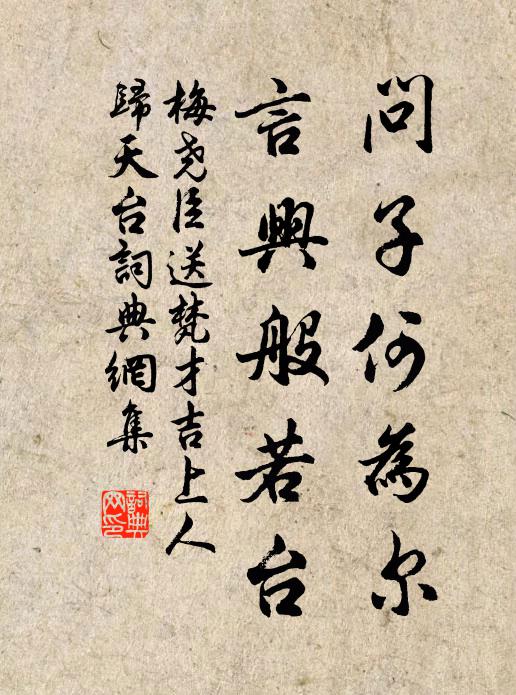 問子何為尔
言興般若台
梅尧臣送梵才吉上人
歸天台詞典網集
詞典网印